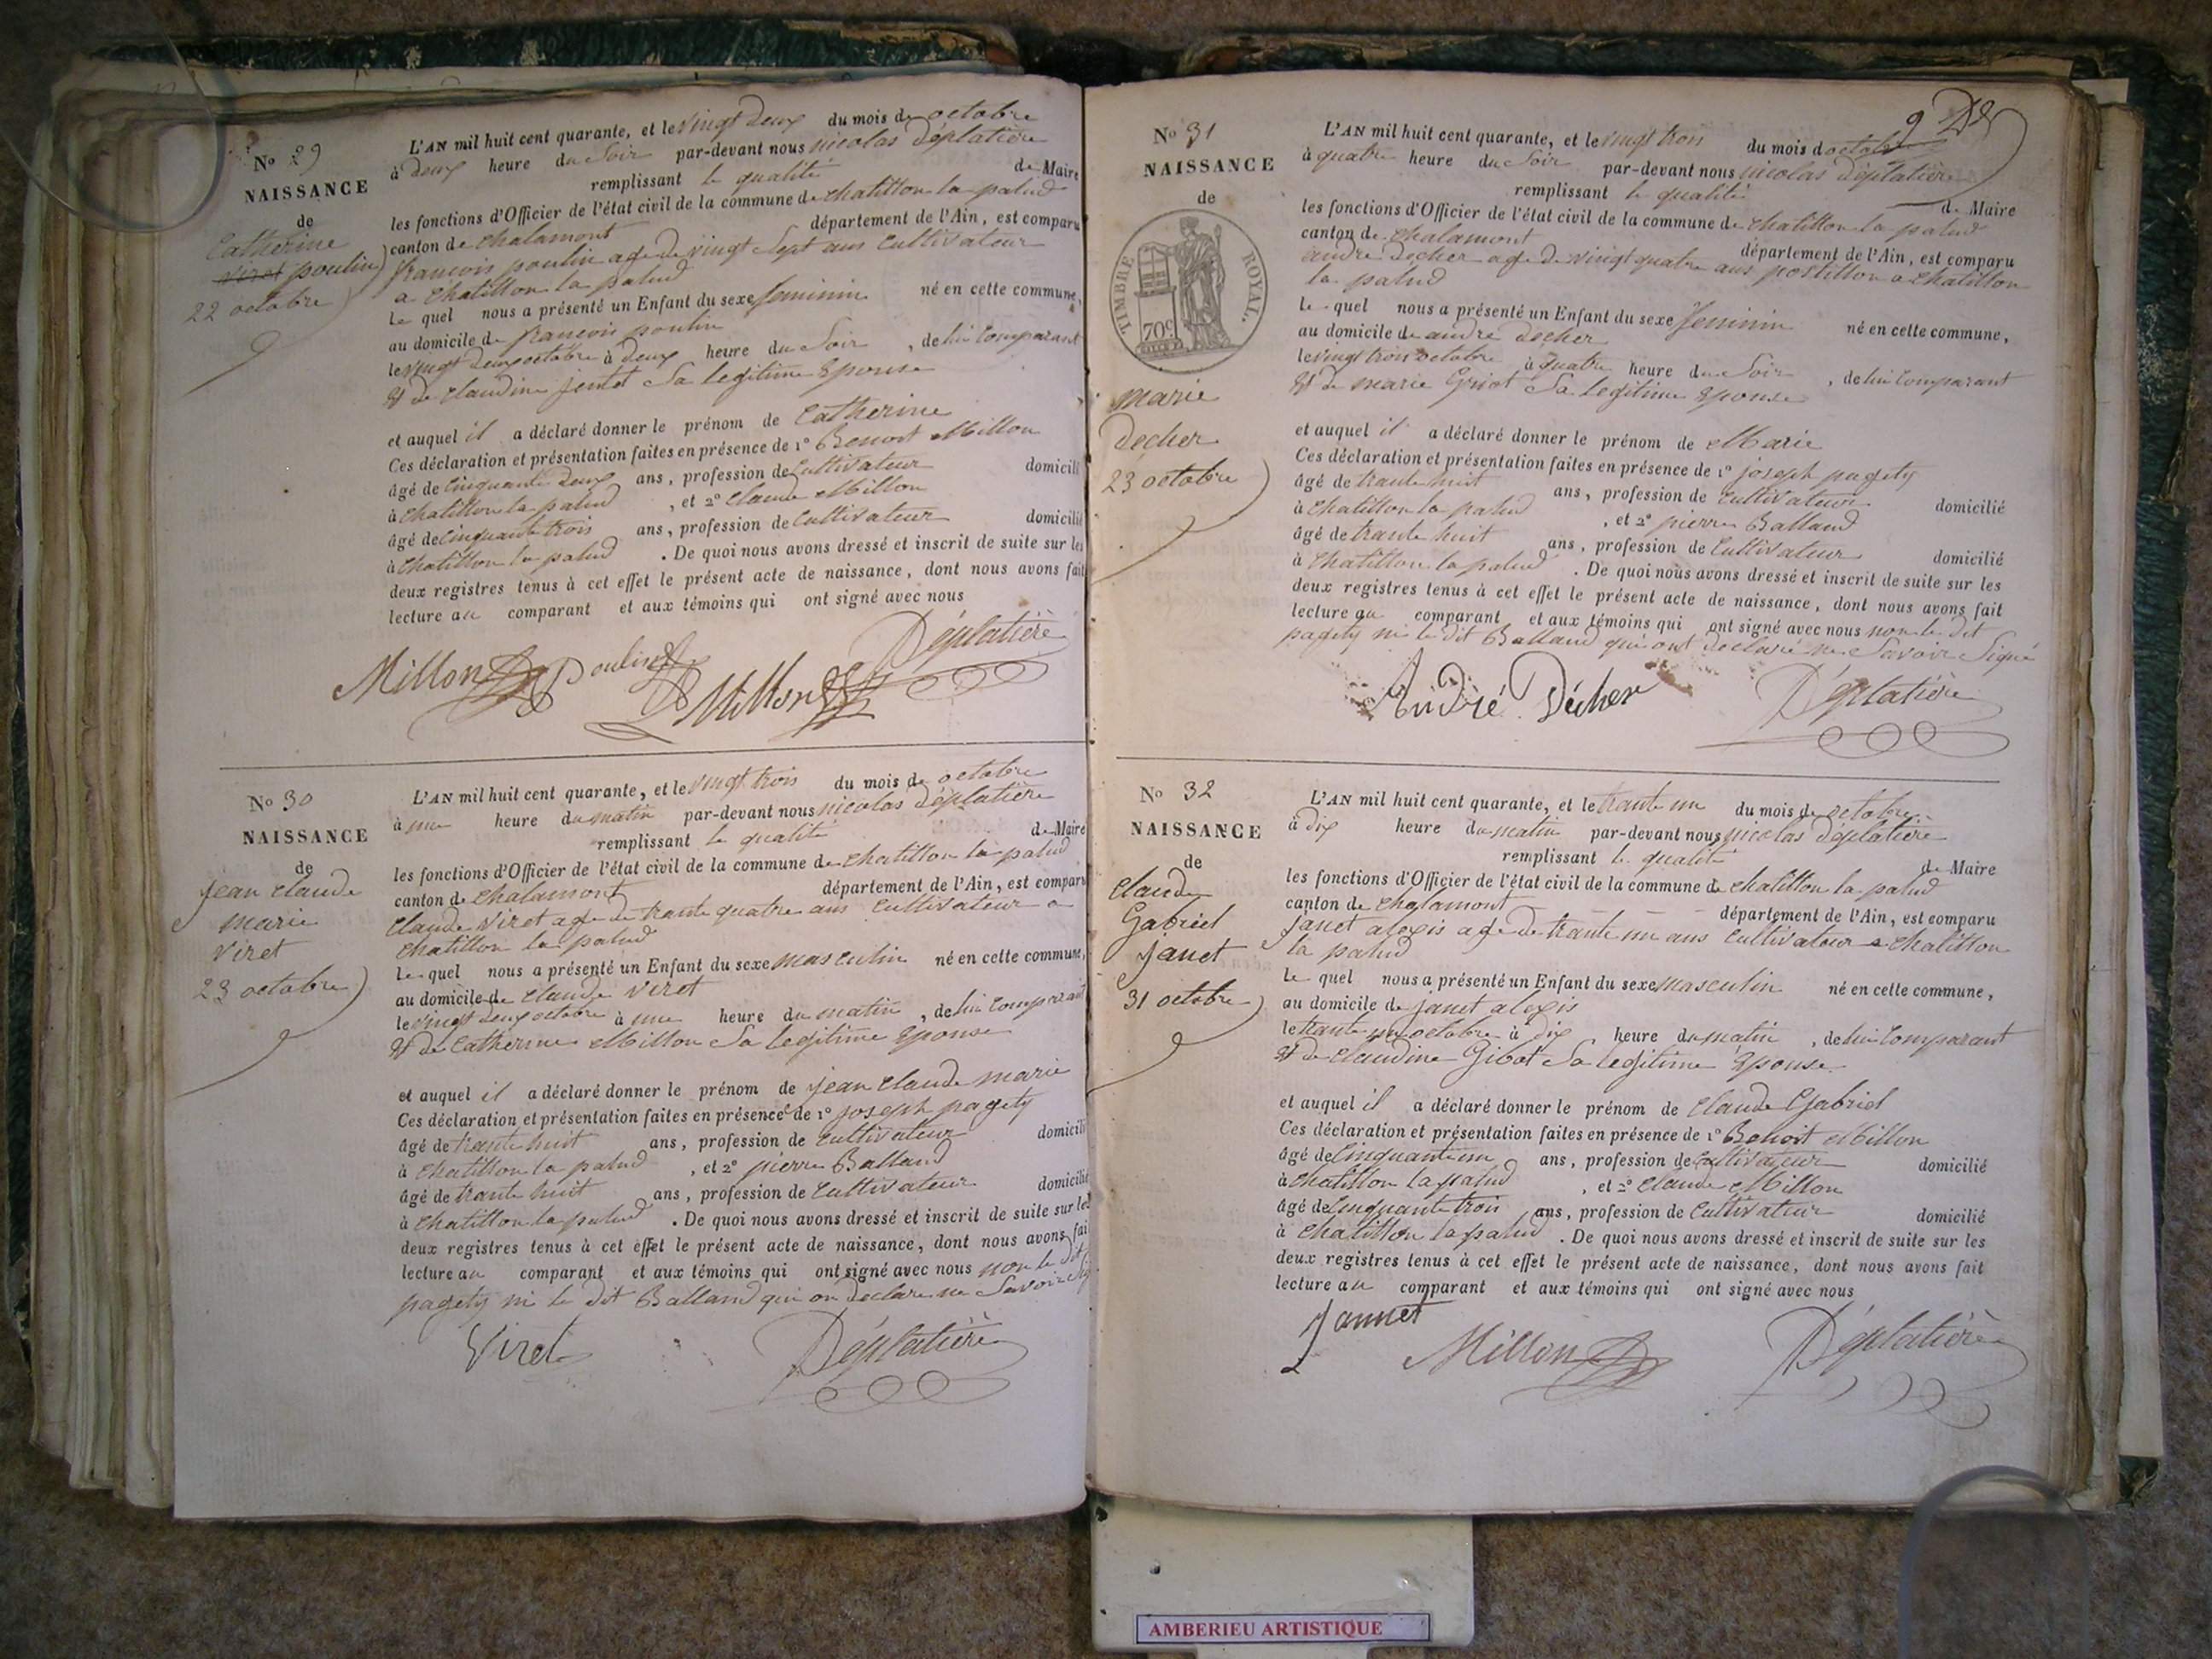 N° 29
NAISSANCE
de
Catherine
viret poulin
22 octobre
L'AN mil huit cent quarante, et le vingt deux du mois de octobre
à deux heure du Soir par-devant nous nicolas Déplatière
remplissant le qualité de Maire
les fonctions d'Officier de l'état civil de la commune de chatillon la palud
canton de chalamont département de l'Ain, est comparu
francois poulin age de vingt Sept ans Cultivateur
a chatillon la palud
Le quel nous a présenté un Enfant du sexe feminin né en cette commune,
au domicile de francois poulin
le vingt deux octobre à deux heure du Soir, de lui Comparant
Et de Claudine Sa legitime Epouse
et auquel il a déclaré donner le prénom de Catherine
Ces déclaration et présentation faites en présence de 1° Benoit Millon
âgé de Cinquante deux ans, profession de Cultivateur domicilié
à Chatillon la palud, et 2° Claude Millon
âgé de Cinquante trois ans, profession de Cultivateur domicilié
à Chatillon la palud. De quoi nous avons dressé et inscrit de suite sur les
deux registres tenus à cet effet le présent acte de naissance, dont nous avons fait
lecture au comparant et aux témoins qui ont signé avec nous
Millon Poulin Millon Déplatière
N° 30
NAISSANCE
de
jean claude
marie
viret
23 octobre
L'AN mil huit cent quarante, et le vingt trois du mois de octobre
à une heure du matin par-devant nous nicolas Déplatière
remplissant le qualité de Maire
les fonctions d'Officier de l'état civil de la commune de chatillon la palud
canton de chalamont département de l'Ain, est comparu
Claude Viret age de trante quatre ans Cultivateur a
Chatillon la palud
Le quel nous a présenté un Enfant du sexe masculin né en cette commune,
au domicile de Claude Viret
le vingt deux octobre à une heure du matin, de lui Comparant
Et de Catherine Millon Sa legitime Epouse
et auquel il a déclaré donner le prénom de jean Claude marie
Ces déclaration et présentation faites en présence de 1° joseph pagety
âgé de trante huit ans, profession de Cultivateur domicilié
à Chatillon la palud, et 2° pierre Balland
âgé de trante huit ans, profession de Cultivateur domicilié
à Chatillon la palud. De quoi nous avons dressé et inscrit de suite sur les
deux registres tenus à cet effet le présent acte de naissance, dont nous avons fai
lecture au comparant et aux témoins qui ont signé avec nous non le dit
pagety ni le dit Balland qui on declare ne Savoir
Viret Déplatière
9
N° 31
NAISSANCE
de
TIMBRE ROYAL.
70c
marie
Decher
23 octobre
L'AN mil huit cent quarante, et le vingt trois du mois d octobre
à quatre heure du Soir par-devant nous nicolas Déplatière
remplissant le qualité de Maire
les fonctions d'Officier de l'état civil de la commune de chatillon la palud
canton de Chalamont département de l'Ain, est comparu
andré Decher age de vingt quatre ans postillon a chatillon
la palud
Le quel nous a présenté un Enfant du sexe feminin né en cette commune,
au domicile de andré Decher
le vingt trois octobre à quatre heure du Soir, de lui Comparant
Et de marie Griot Sa legitime Epouse
et auquel il a déclaré donner le prénom de Marie
Ces déclaration et présentation faites en présence de 1° joseph pagety
âgé de trante huit ans, profession de Cultivateur domicilié
à Chatillon la palud, et 2° pierre Balland
âgé de trante huit ans, profession de Cultivateur domicilié
à Chatillon la palud. De quoi nous avons dressé et inscrit de suite sur les
deux registres tenus à cet effet le présent acte de naissance, dont nous avons fait
lecture au comparant et aux témoins qui ont signé avec nous non le dit
pagety ni le dit Balland qui ont declaré ne Savoir Signé
André Décher Déplatière
N° 32
NAISSANCE
de
Claude
Gabriel
Janet
31 octobre
L'AN mil huit cent quarante, et le trante un du mois de octobre
à dix heure du matin par-devant nous nicolas Déplatière
remplissant le qualité de Maire
les fonctions d'Officier de l'état civil de la commune de chatillon la palud
canton de Chalamont département de l'Ain, est comparu
Janet alexis age de trante un ans Cultivateur a Chatillon
la palud
Le quel nous a présenté un Enfant du sexe masculin né en cette commune,
au domicile de janet alexis
le trante un octobre à dix heure du matin, de lui Comparant
Et de Claudine Gibot Sa legitime Epouse
et auquel il a déclaré donner le prénom de Claude Gabriel
Ces déclaration et présentation faites en présence de 1° Benoit Millon
âgé de Cinquante un ans, profession de Cultivateur domicilié
à Chatillon la palud, et 2° Claude Millon
âgé de Cinquante trois ans, profession de Cultivateur domicilié
à Chatillon la palud. De quoi nous avons dressé et inscrit de suite sur les
deux registres tenus à cet effet le présent acte de naissance, dont nous avons fait
lecture au comparant et aux témoins qui ont signé avec nous
Jannet Millon Déplatière
AMBERIEU ARTISTIQUE